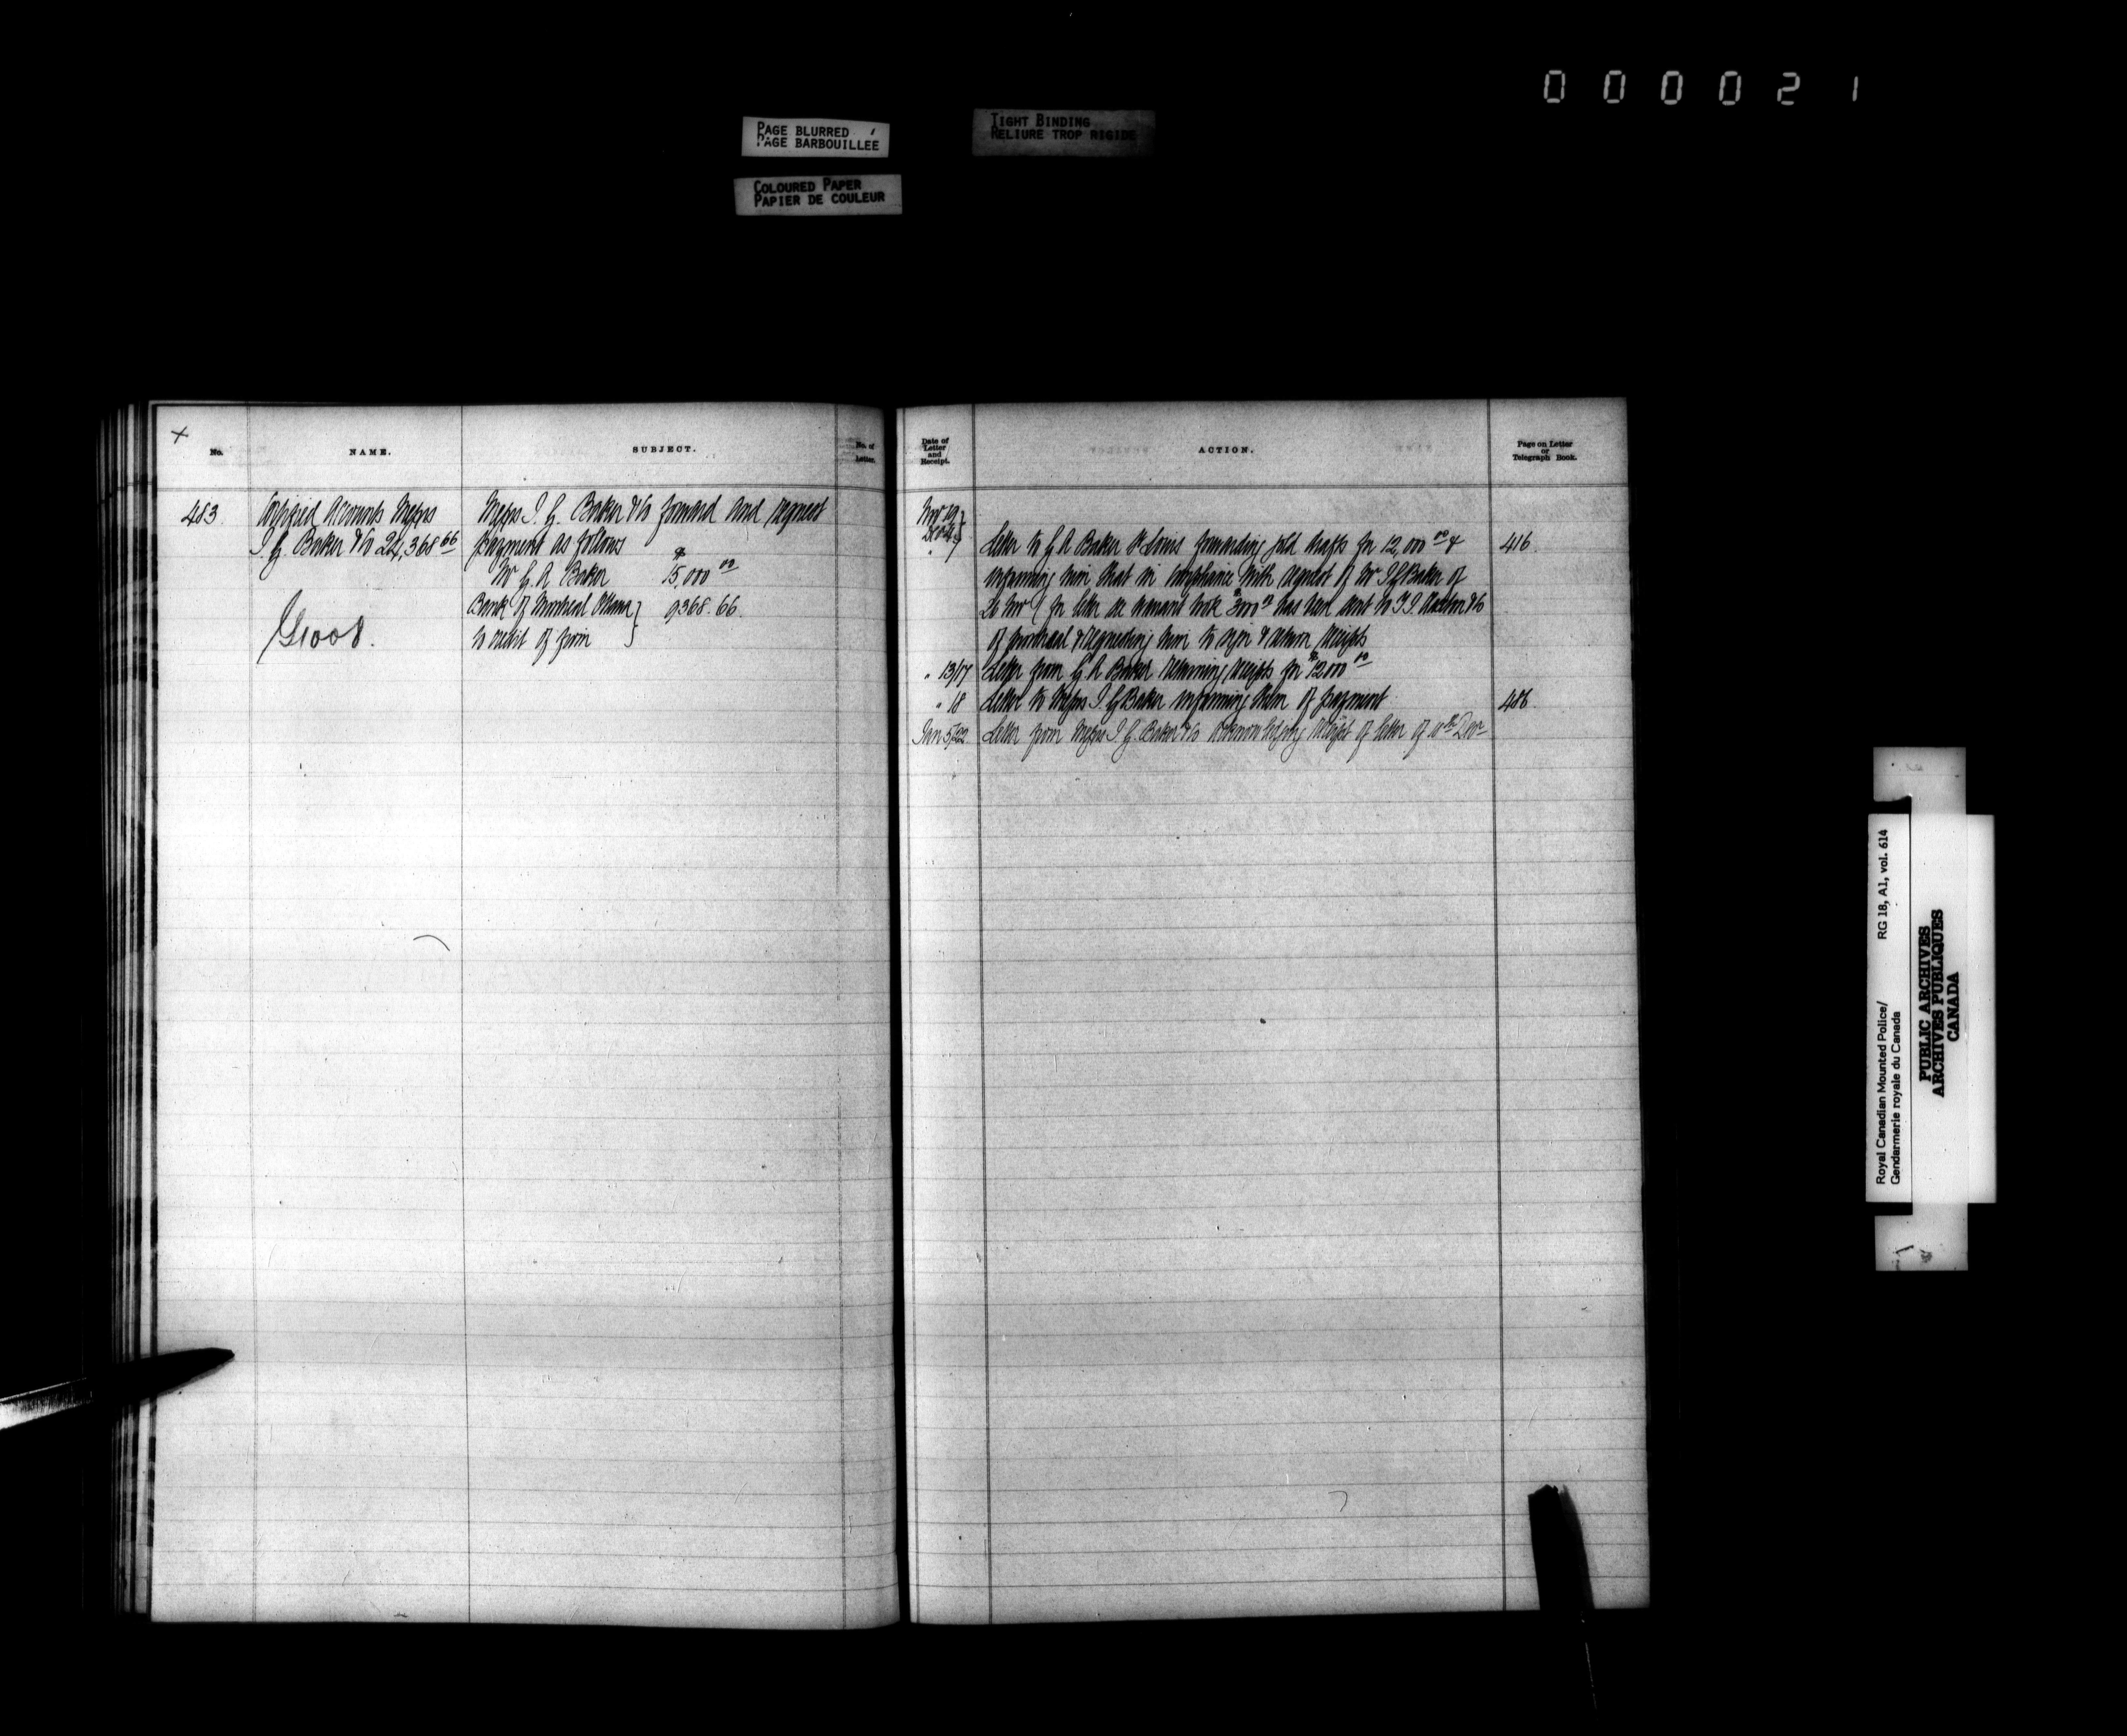 000021
PAGE BLURRED
PAGE BARBOUILLÉE
TIGHT BINDING
RELIURE TROP RIGIDE
COLOURED PAPER
PAPIER DE COULEUR
No.
NAME.
SUBJECT.
No. of
Letter.
483
Certified Accounts Messrs
I. G. Baker & Co 24,368 66
G 1008.
Messrs I. G. Baker & Co forward and request
payment as follows
Mr G. A Baker $ 15,000 00
Bank of Montreal Ottawa } 9368.66
to credit of firm
Date of
Letter
and
Receipt.
ACTION.
Page on Letter
or
Telegraph Book.
Nov 19 }
Dec
" 7 Letter to G A Baker St Louis forwarding gold drafts for 12,000 00 & 416.
informing him that in compliance with request of Mr I G Baker of
Nov for $3000 00 has been sent to & Co
of Montreal & requesting him to sign & return receipts
" 13/17 Letter from G A Baker returning receipts for $12000 00
" 18 Letter to Messrs I. G Baker informing them of payment 486
Jan 5/22 Letter from Messrs I. G. Baker & Co acknowledging receipt of letter of Decr
Royal Canadian Mounted Police/
Gendarmerie royale du Canada
RG 18, A1, vol. 614
PUBLIC ARCHIVES
ARCHIVES PUBLIQUES
CANADA